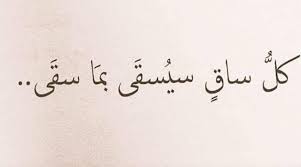 كلُّ ساقٍ سيُسقَى بمَا سقَى..